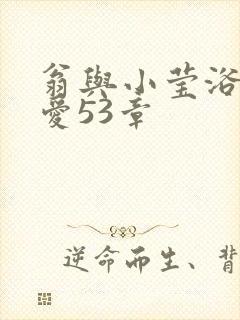 翁與小莹浴
愛53章
逆命而生、背